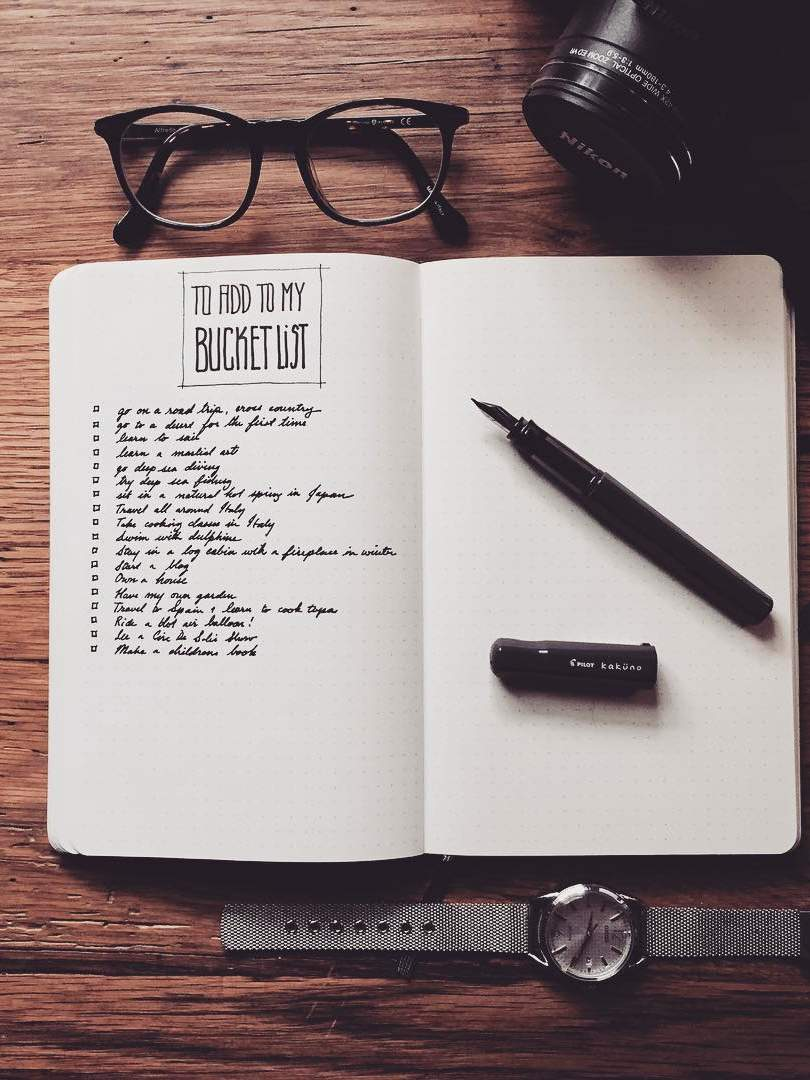 2X WIDE OPTICAL ZOOM ED VR
4.3-180mm 1:3-5.9
Nikon
CE
TO ADD TO MY
BUCKET LIST
go on a road trip, cross country
go to a desert for the first time
learn to sail
learn a martial art
go deep sea diving
try deep sea fishing
sit in a natural hot spring in Japan
Travel all around Italy
Take cooking classes in Italy
Swim with dolphins
Stay in a log cabin with a fireplace in winter
Start a blog
Own a house
Have my own garden
Travel to Spain + learn to cook tapa
Ride a Hot air balloon!
See a Circ De Solis Show
Make a childrens book
PILOT kaküno